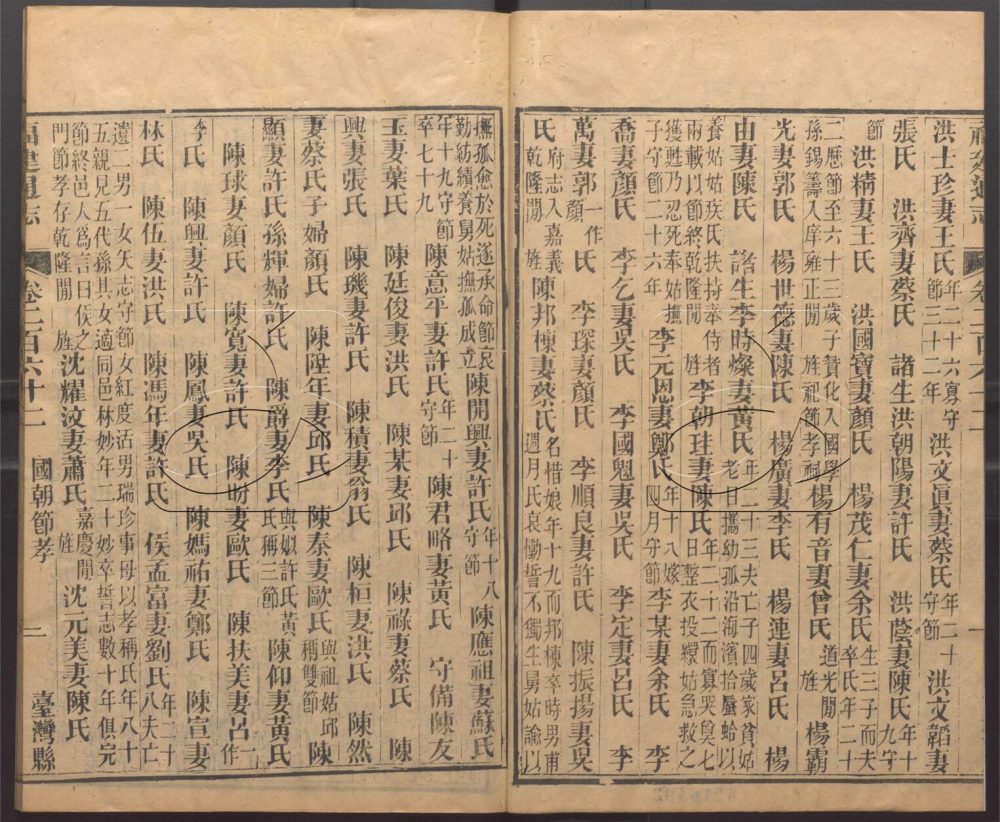 福建通志 卷二百六十二 一
洪士珍妻王氏 年二十六寡守節三十二年 洪文眞妻蔡氏 年二十守節 洪文韜妻
張氏 洪齊妻蔡氏 諸生洪朝陽妻許氏 洪蔭妻陳氏 年十九守
節 洪精妻王氏 洪國寶妻顏氏 楊茂仁妻余氏 生三子而夫卒氏年二十
二歷節至六十三歲子贊化入國學孫錫籌入庠雍正間 旌祀節孝祠 楊有音妻曾氏 道光間旌 楊霸
光妻郭氏 楊世德妻陳氏 楊廣妻李氏 楊連妻呂氏 楊
由妻陳氏 諸生李時燦妻黃氏 年二十三夫亡子四歲家貧姑老日攜幼孤沿海濱拾蜃蛤以
養姑姑疾氏扶持奉侍者兩載以節終乾隆間 旌 李朝珪妻陳氏 年二十二而寡哭奠七日整衣投繯姑急救之
獲甦乃忍死奉姑撫子守節二十六年 李元恩妻鄭氏 年十八嫁四月守節 李某妻余氏 李
喬妻顏氏 李乞妻吳氏 李國魁妻吳氏 李定妻呂氏 李
萬妻郭一作顏氏 李琛妻顏氏 李順良妻許氏 陳振揚妻吳
氏 府志入嘉義乾隆間 旌 陳邦棟妻蔡氏 名惜娘年十九而邦棟卒時男甫週月氏哀慟誓不獨生舅姑諭以
撫孤愈於死遂承命節哀勤紡績養舅姑撫孤成立 陳開興妻許氏 年十八守節 陳應祖妻蘇氏
年十九守節卒七十九 陳意平妻許氏 年二十守節 陳君略妻黃氏 守備陳友
玉妻葉氏 陳廷俊妻洪氏 陳某妻邱氏 陳祿妻蔡氏 陳
興妻張氏 陳璣妻許氏 陳積妻翁氏 陳桓妻洪氏 陳然
妻蔡氏子婦顏氏 陳陞年妻邱氏 陳泰妻歐氏 與祖姑邱稱雙節 陳
顯妻許氏孫輝婦許氏 陳爵妻李氏 與姒許氏黃氏稱三節 陳仰妻黃氏
陳球妻顏氏 陳寬妻許氏 陳盼妻歐氏 陳扶美妻呂一作
李氏 陳興妻許氏 陳鳳妻吳氏 陳媽祐妻鄭氏 陳宣妻
林氏 陳伍妻洪氏 陳馮年妻許氏 侯孟富妻劉氏 年二十八夫亡
遺二男一女矢志守節女紅度活男瑞珍事母以孝稱氏年八十
五親見五代孫其女適同邑林妙年二十妙卒誓志數十年俱完
節終邑人爲言曰侯之門節孝存乾隆間 旌 沈耀汶妻蕭氏 嘉慶間旌 沈元美妻陳氏
福建通志 卷二百六十二 國朝節孝 二 臺灣縣